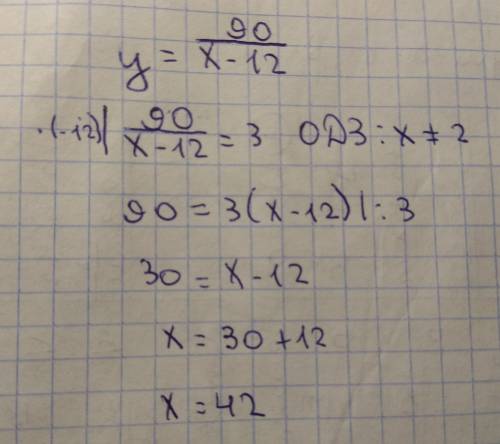 y = 90/(x-12)
·(-12)| 90/(x-12) = 3 ОДЗ: x ≠ 2
90 = 3(x-12) |: 3
30 = x-12
x = 30+12
x = 42